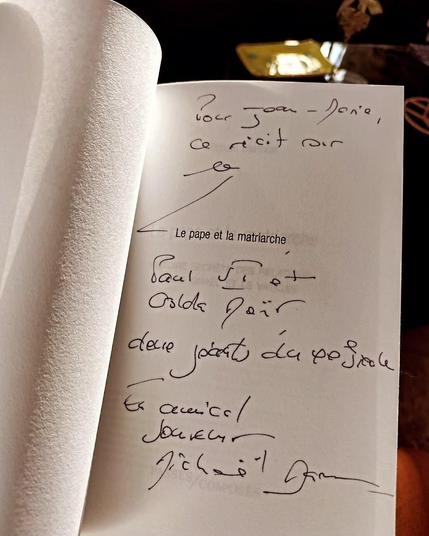 Pour Jean-Marie,
ce récit sur
le
Le pape et la matriarche
Paul VI et
Golda Meïr
deux géants du XXe siècle
En amical
souvenir
Michaël